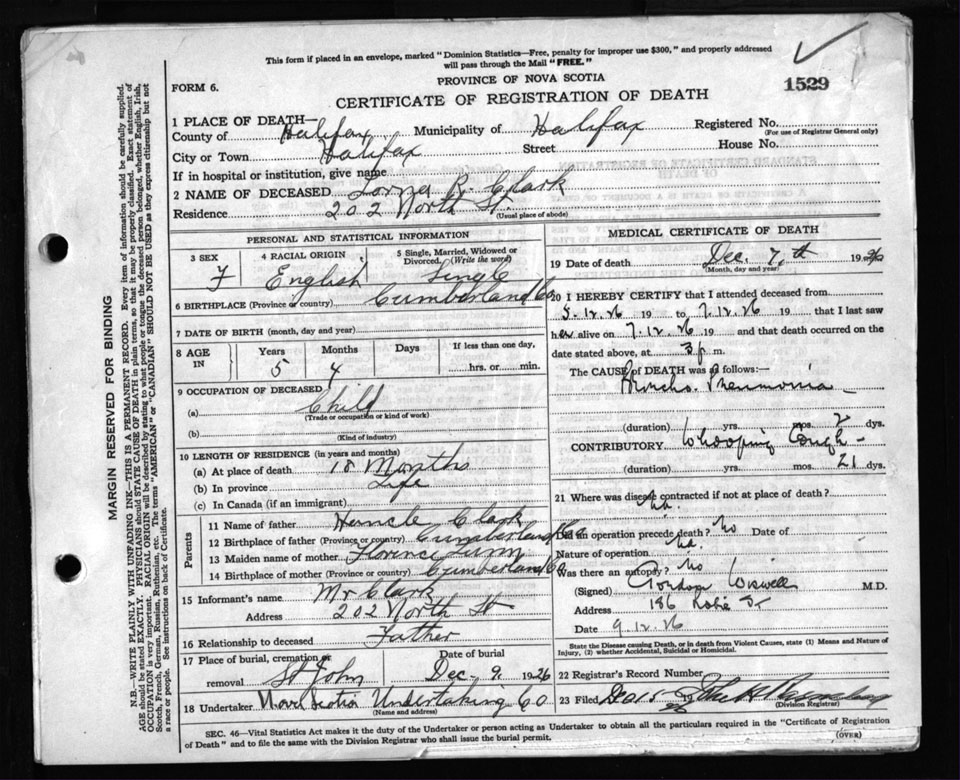 This form if placed in an envelope, marked "Dominion Statistics—Free, penalty for improper use $300," and properly addressed
will pass through the Mail "FREE."
FORM 6.
PROVINCE OF NOVA SCOTIA
1529
CERTIFICATE OF REGISTRATION OF DEATH
1 PLACE OF DEATH—
County of Halifax Municipality of Halifax Registered No.
(For use of Registrar General only)
City or Town Halifax Street House No.
If in hospital or institution, give name
2 NAME OF DECEASED R. Clark
Residence 202 North St.
(Usual place of abode)
PERSONAL AND STATISTICAL INFORMATION
3 SEX 4 RACIAL ORIGIN 5 Single, Married, Widowed or Divorced. (Write the word)
F English Single
6 BIRTHPLACE (Province or country) Cumberland Co
7 DATE OF BIRTH (month, day and year)
8 AGE IN Years Months Days If less than one day,
5 4 hrs. or min.
9 OCCUPATION OF DECEASED
(a) Child
(Trade or occupation or kind of work)
(b)
(Kind of industry)
10 LENGTH OF RESIDENCE (in years and months)
(a) At place of death 18 Months
(b) In province Life
(c) In Canada (if an immigrant)
Parents
11 Name of father Clark
12 Birthplace of father (Province or country) Cumberland Co
13 Maiden name of mother Florence
14 Birthplace of mother (Province or country) Cumberland Co
15 Informant's name Mr Clark
Address 202 North St
16 Relationship to deceased Father
17 Place of burial, cremation or removal St John Date of burial Dec 9 1926
18 Undertaker Nova Scotia Undertaking Co
(Name and address)
MEDICAL CERTIFICATE OF DEATH
19 Date of death Dec. 7th 1926
(Month, day and year)
20 I HEREBY CERTIFY that I attended deceased from
5.12.26 19 to 7.12.26 19 that I last saw
her alive on 7.12.26 19 and that death occurred on the
date stated above, at 3 p m.
The CAUSE OF DEATH was as follows:—
Broncho. Pneumonia
(duration) yrs. mos. 2 dys.
CONTRIBUTORY Whooping Cough
(duration) yrs. mos. 21 dys.
21 Where was disease contracted if not at place of death?
Did an operation precede death? No Date of
Nature of operation
Was there an autopsy? No
(Signed) Gordon Wiswell M.D.
Address 186 Robie St
Date 9.12.26
State the Disease causing Death, or in death from Violent Causes, state (1) Means and Nature of
Injury, (2) whether Accidental, Suicidal or Homicidal.
22 Registrar's Record Number
23 Filed Dec 15
(Division Registrar)
SEC. 46—Vital Statistics Act makes it the duty of the Undertaker or person acting as Undertaker to obtain all the particulars required in the "Certificate of Registration
of Death" and to file the same with the Division Registrar who shall issue the burial permit.
(OVER)
MARGIN RESERVED FOR BINDING
N.B.—WRITE PLAINLY WITH UNFADING INK—THIS IS A PERMANENT RECORD. Every item of information should be carefully supplied.
AGE should be stated EXACTLY. PHYSICIANS should STATE CAUSE OF DEATH in plain terms, so that it may be properly classified. Exact statement of
OCCUPATION is very important. RACIAL ORIGIN will be described by stating to what people or tongue the deceased person belonged, whether English, Irish,
Scotch, French, German, Russian, Ruthenian, etc. The terms "AMERICAN" or "CANADIAN" SHOULD NOT BE USED as they express citizenship but not
a race or people. See instructions on back of Certificate.